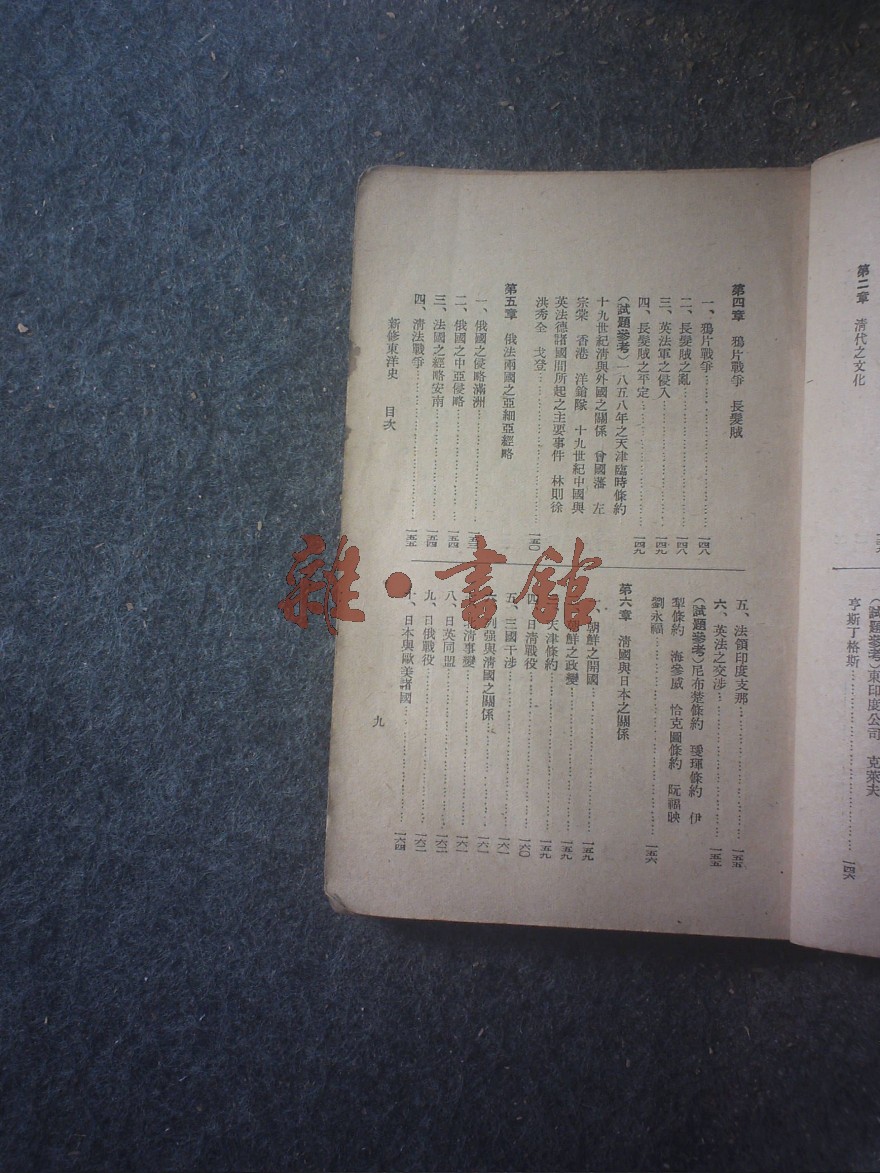 第二章 清代之文化
(試題參考)東印度公司 克萊夫
亨斯丁格斯……一四六
第四章 鴉片戰爭 長髮賊
一、鴉片戰爭……一四八
二、長髮賊之亂……一四八
三、英法軍之侵入……一四九
四、長髮賊之平定……一四九
(試題參考)一八五八年之天津臨時條約
十九世紀清與外國之關係 曾國藩 左
宗棠 香港 洋鎗隊 十九世紀中國與
英法德諸國間所起之主要事件 林則徐
洪秀全 戈登……一五〇
第五章 俄法兩國之亞細亞經略
一、俄國之侵略滿洲……一五三
二、俄國之中亞侵略……一五四
三、法國之經略安南……一五四
四、清法戰爭……一五五
五、法領印度支那……一五五
六、英法之交涉……一五五
(試題參考)尼布楚條約 璦琿條約 伊
犁條約 海參威 恰克圖條約 阮福映
劉永福……一五六
第六章 清國與日本之關係
朝鮮之開國……一五九
鮮之政變……一五九
天津條約……一五九
四、日清戰役……一六〇
五、三國干涉……一六一
列强與清國之關係……一六一
北清事變……一六一
八、日英同盟……一六二
九、日俄戰役……一六二
十、日本與歐美諸國……一六四
新修東洋史 目次
九
雜·書館